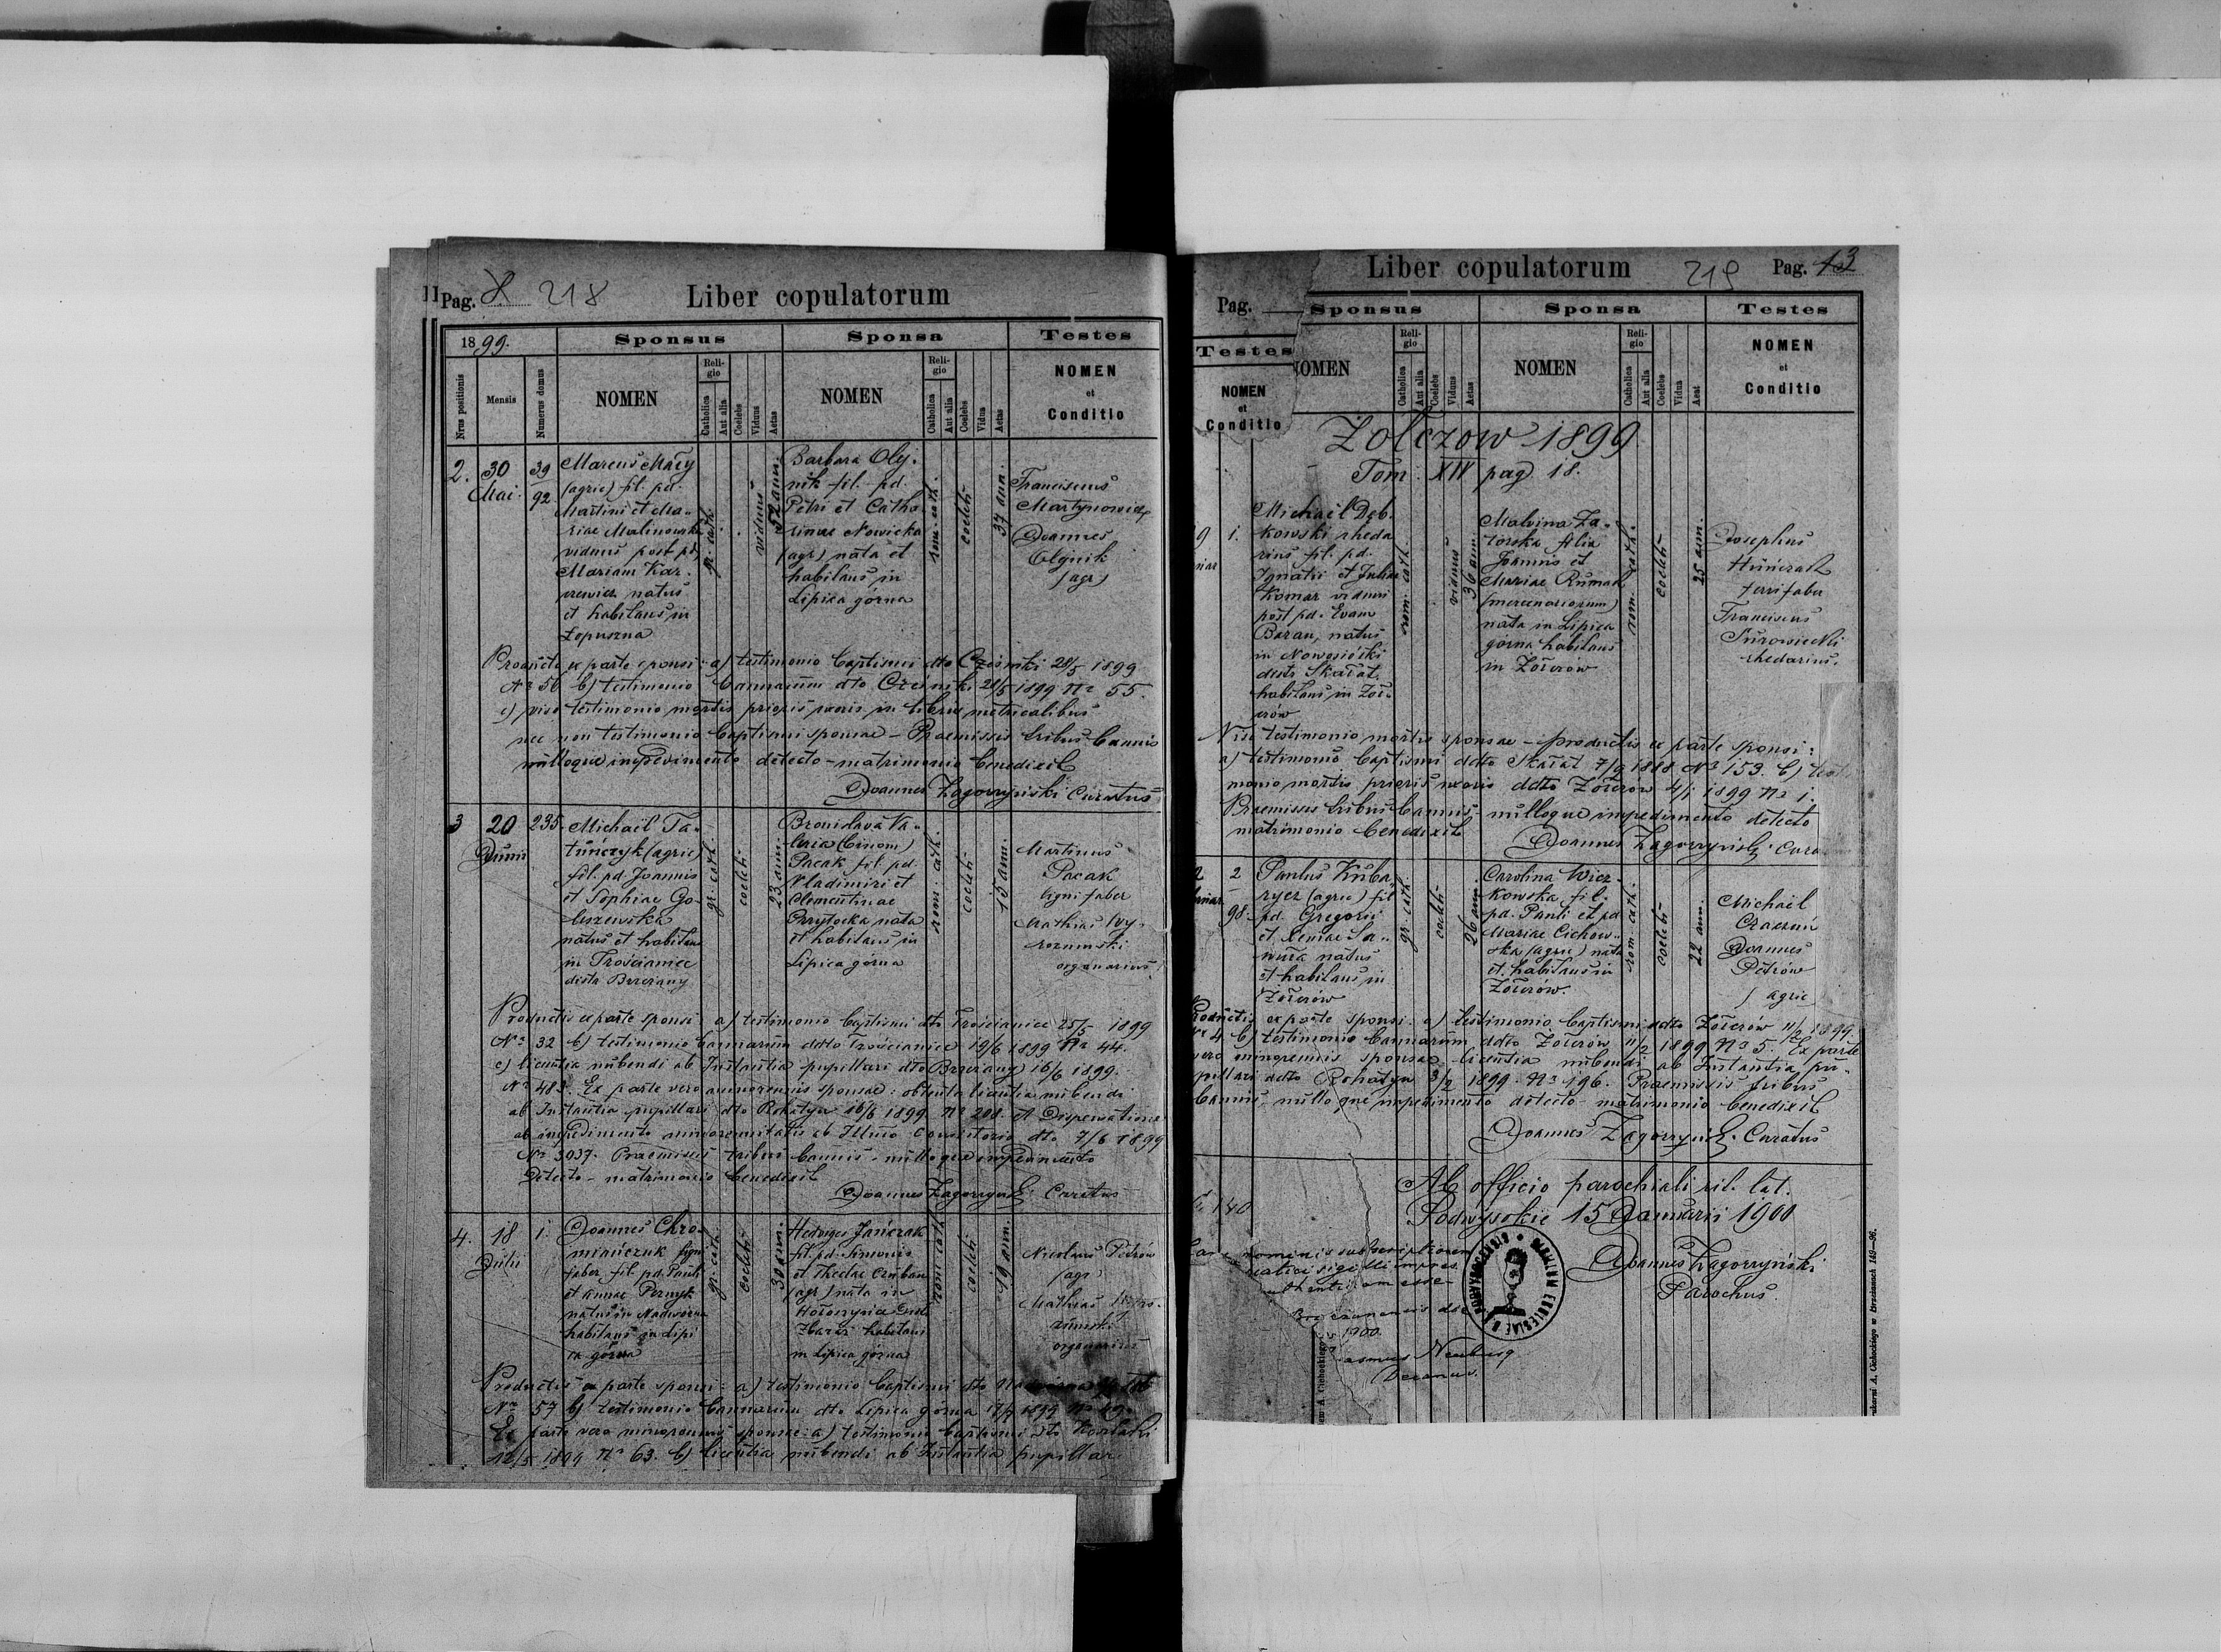 Pag. 8 218 Liber copulatorum
1899.
Sponsus
Sponsa
Testes
Nrus positionis
Mensis
Numerus domus
NOMEN
Religio
Catholica
Aut alia
Coelebs
Viduus
Aetas
NOMEN
Religio
Catholica
Aut alia
Coelebs
Vidua
Aetas
NOMEN
et
Conditio
2.
30
Mai.
39
92
Marcus Maćy
(agric) fil. pd.
Martini et Ma-
riae Malinowska
viduus post pd.
Mariam Kar-
natus
et habitans in
Łopuszna
gr. cath.
viduus
52 ann.
Barbara Oly-
nik fil. pd.
Petri et Catha-
rinae Nowicka
(agr) nata et
habitans in
Lipica górna
rom. cath.
coelebs
37 ann.
Franciscus
Martynowicz
Joannes
Olynik
(agr)
Productis ex parte sponsi: a) testimonio baptismi dto Cześniki 28/5 1899
Nr 56 b) testimonio bannorum dto Cześniki 28/5 1899 Nr 55.
c) viso testimonio mortis prioris uxoris in libris metricalibus
nec non testimonio baptismi sponsae - Praemissis tribus bannis
nulloque impedimento detecto - matrimonio benedixit
Joannes Zagorzyński Curatus
3
20
Junii
235.
Michaël Ta-
tuńczyk (agric)
fil. pd. Joannis
et Sophiae Go-
leszewska
natus et habitans
in Trościaniec
distr. Brzeżany
gr. cath.
coelebs
23 ann.
Bronislava Va-
leria (binom)
Pacak fil. pd.
Vladimiri et
Clementinae
Przytocka nata
et habitans in
Lipica górna
rom. cath.
coelebs
15 ann.
Martinus
Pacak
lignifaber
Mathias Wy-
rozumski
organarius
Productis ex parte sponsi a) testimonio baptismi dto Trościaniec 25/5 1899
Nr 32 b) testimonio bannorum ddto Trościaniec 19/6 1899 Nr 44.
c) licentia nubendi ab Instantia pupillari dto Brzeżany 16/6 1899.
Ex parte vero minorennis sponsae: obtenta licentia nubendi
ab Instantia pupillari dto Rohatyn 16/6 1899 Nr 208. et Dispensatione
ab impedimento minorennitatis ab Illmo Consistorio dto 7/6 1899
Nr 3037. Praemissis tribus bannis - nulloque impedimento
detecto - matrimonio benedixit
Joannes Zagorzyński Curatus
4.
18
Julii
1.
Joannes Chro-
mianczuk ligni
faber fil. pd. Pauli
et Annae
natus in Nadwórna
habitans in Lipi
ca górna
gr. cath.
coelebs
30 ann.
Hedviges Jańczak
fil. pd. Simonis
et Theclae
(agr) nata in
distr.
Zbaraż habitans
in Lipica górna
rom. cath.
coelebs
19 ann.
Nicolaus Petrów
(agr)
Mathias
organarius
Productis ex parte sponsi: a) testimonio baptismi dto
Nr 57 b) testimonio bannorum dto Lipica górna 17/7 1899 Nr 49.
Ex parte vero minorennis sponsae: a) testimonio baptismi dto
12/5 1899 Nr 63. b) licentia nubendi ab Instantia pupillar.
Liber copulatorum 219 Pag. 13
Pag.
Sponsus
Sponsa
Testes
Testes
NOMEN
et
Conditio
NOMEN
Religio
Catholica
Aut alia
Coelebs
Viduus
Aetas
NOMEN
Religio
Catholica
Aut alia
Coelebs
Vidua
Aeat
NOMEN
et
Conditio
Żołczow 1899
Tom. XIV pag 18.
9
1.
Michaël Dęb-
kowski rheda
rius fil. pd.
Ignatii et Juliae
Komar viduus
post pd. Evam
Baran, natus
in Nowosiółki
distr Skałat
habitans in Żoł-
czów
rom. cath.
viduus
36 ann.
Malvina Za-
torska filia
Joannis et
Mariae Rumak
(mercenariorum)
nata in Lipica
górna habitans
in Żołczów
rom. cath.
coelebs
25 ann.
Josephus
ferrifaber
Franciscus
Surowiecki
rhedarius.
Viso testimonio mortis sponsae - productis ex parte sponsi:
a) testimonio baptismi ddto Skałat 7/9 1888 Nr 153. b) testi
monio mortis prioris uxoris ddto Żołczów 4/1 1899 Nr 1.
Praemissis tribus bannis - nulloque impedimento detecto
matrimonio benedixit
Joannes Zagorzyński Cura
2
2
98.
Paulus Kuba
ryez (agric) fil
pd. Gregorii
et Xeniae Sa-
wura natus
et habitans in
Żołczów
gr. cath.
coelebs
26 ann.
Carolina Wier-
kowska fil.
pd. Pauli et pd
Mariae Cichow-
ska (agric) nata
et habitans in
Żołczów.
rom. cath.
coelebs
22 ann.
Michaël
Joannes
Petrów
agric
Productis ex parte sponsi a) testimonio baptismi ddto Żołczów 11/2 1899
Nr 4 b) testimonio bannorum ddto Żołczów 11/2 1899 Nr 5. Ex parte
vero minorennis sponsae - licentia nubendi ab Instantia pu-
pillari ddto Rohatyn 3/2 1899 Nr 196. Praemissis tribus
bannis - nullo que impedimento detecto matrimonio benedixit
Joannes Zagorzyński Curatus
Ab officio parochiali rit. lat.
Podwysokie 15 Januarii 1900
Joannes Zagorzyński
Parochus
140
nominis subscriptionem
sigilli impres
authenticam esse
1900
Neuburg
Decanus.